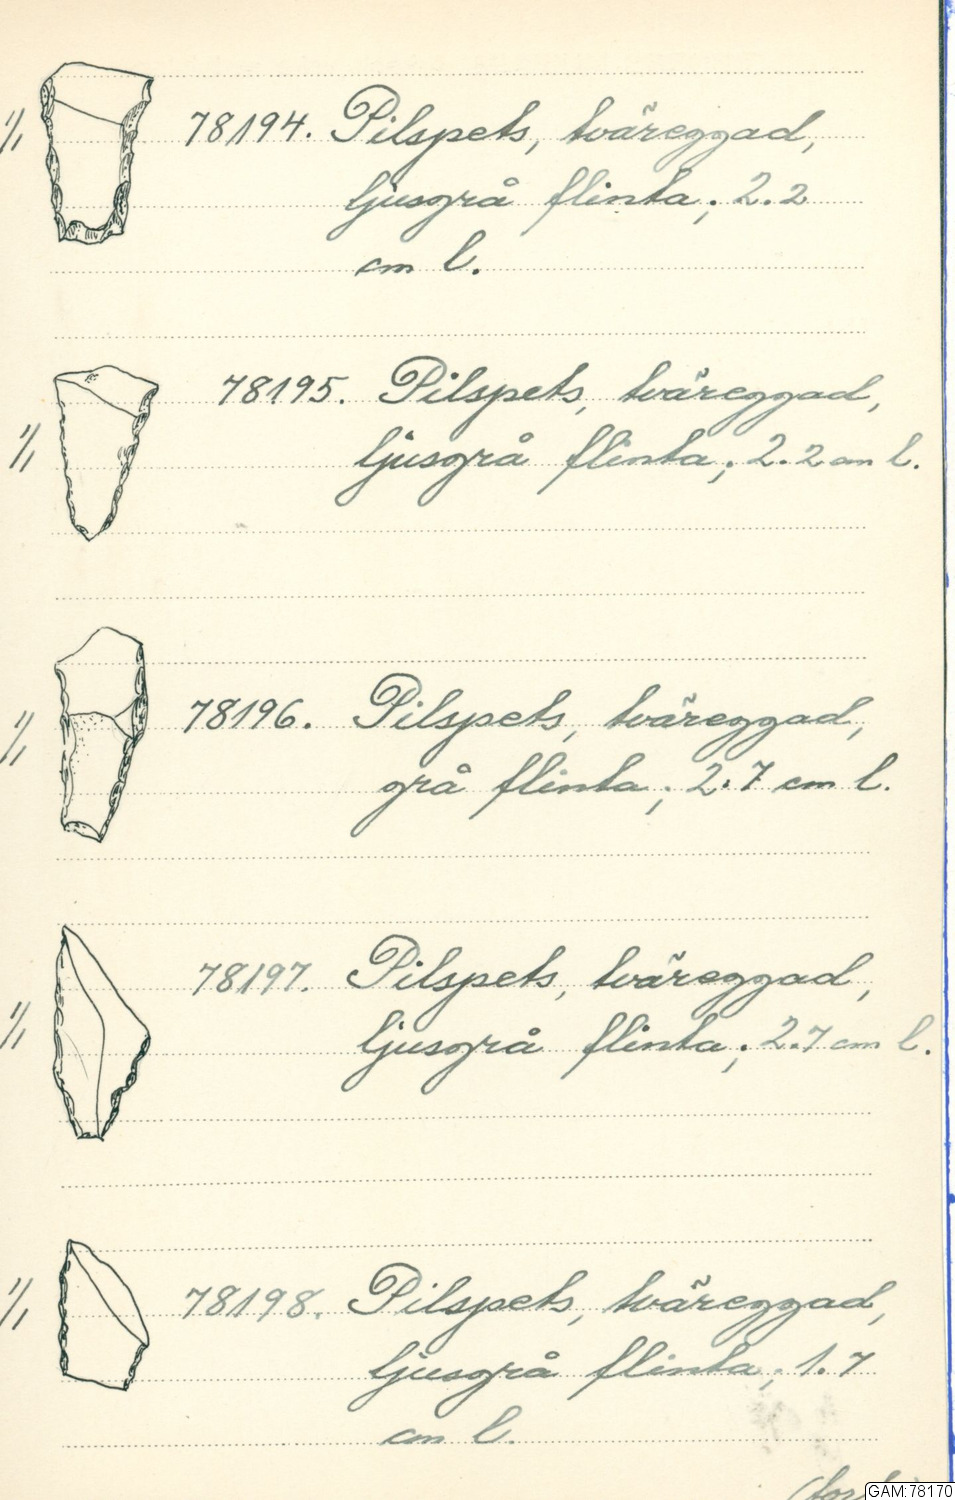 1/1 78194. Pilspets, tväreggad,
ljusgrå flinta; 2.2
cm l.
1/1 78195. Pilspets, tväreggad,
ljusgrå flinta; 2.2 cm l.
1/1 78196. Pilspets, tväreggad,
grå flinta; 2.7 cm l.
1/1 78197. Pilspets, tväreggad,
ljusgrå flinta; 2.7 cm l.
1/1 78198. Pilspets, tväreggad,
ljusgrå flinta; 1.7
cm l.
GAM:78170